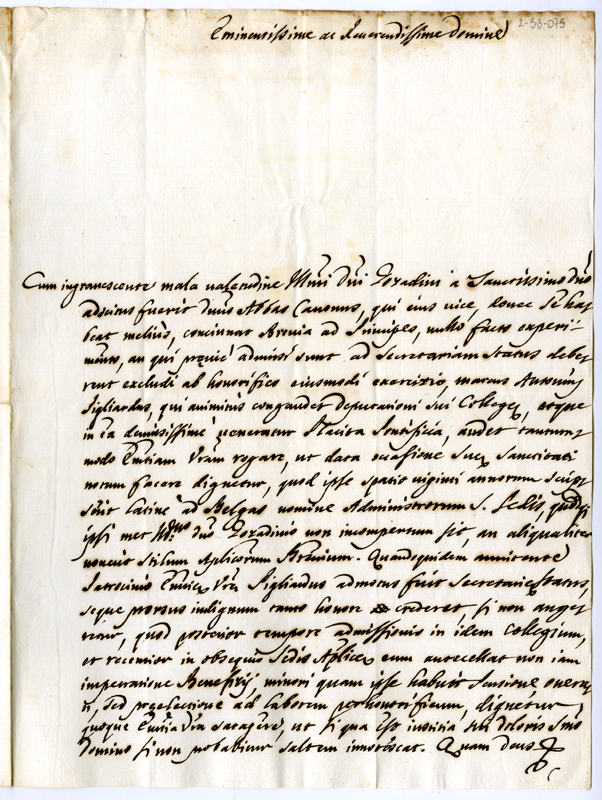 2-53-075
Eminentissime ac Reverendissime Domine
Cum ingravescente mala valetudine Illmi Dni Gozadini a Sanctissimo Dno
adscitus fuerit Dnus Abbas Canonus, qui eius vice, donec se ha-
beat melius, concinnat Brevia ad Principes, nullo facto experi-
mento, an qui prævie admissi sunt ad secretariam status debe-
rent excludi ab honorifico eiusmodi exercitio, Marcus Antonius
Sigliardus, qui animitus congaudet deputationi sui Collegæ, atque
in ea demississime veneratur Placita Pontificia, audet tantum-
modo Emtiam Vram rogare, ut data occasione suæ Sanctitati
notum facere dignetur, quod ipse spatio viginti annorum scrip-
sit Latine ad Belgas nomine Administrorum S. Sedis,
ipsi met Dnus Gozadinus non incompertum sit, an aliqualiter
noverit stilum Aplicorum Brevium. Quandoquidem annuente
Patrocinio Emtiæ Vræ Sigliardus admotus fuit Secretariæ Status,
seque prorsus indignum tanto honore crederet, si non ange-
retur, quod posterior tempore admissionis in idem Collegium,
et recentior in obsequiis Sedis Aplicæ eum antecellat non iam
impetratione Beneficij minori quam ipse habuit Pensione onera-
ti, sed præelectione ad laborem perhonorificum, dignetur
quoque Emtia Vra satagere, ut si qua est iustitia sui doloris Smo
Domino si non probabitur saltem innotescat. Quam Deus &